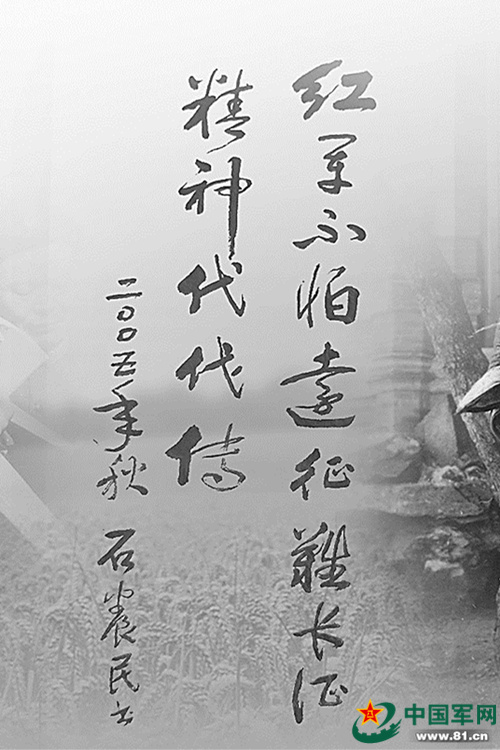 红军不怕远征难长征
精神代代传
二〇〇五年秋 石农民书
中国军网
www.81.cn